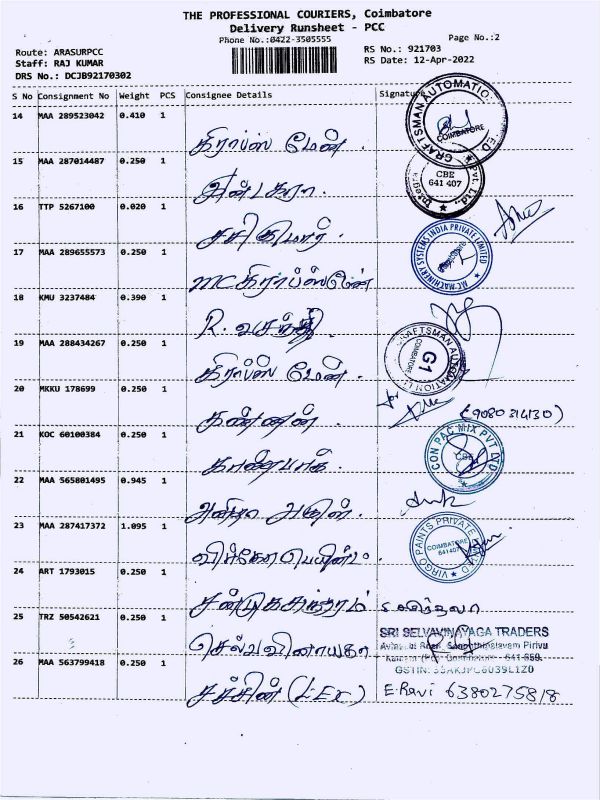 THE PROFESSIONAL COURIERS, Coimbatore
Delivery Runsheet - PCC
Phone No.:0422-3505555
Page No.:2
Route: ARASURPCC
RS No.: 921703
Staff: RAJ KUMAR
RS Date: 12-Apr-2022
DRS No.: DCJB92170302
S No Consignment No Weight PCS Consignee Details Signature
14 MAA 289523042 0.410 1
கிராப்ஸ் மேன்.
CRAFTSMAN AUTOMATION
COIMBATORE
15 MAA 287014487 0.250 1
CBE
641 407
16 TTP 5267100 0.020 1
சசிகுமார்.
17 MAA 289655573 0.250 1
MC கிராப்ஸ்மேன்
MC MACHINERY SYSTEMS INDIA PRIVATE LIMITED
18 KMU 3237484 0.390 1
R. வசந்தி.
19 MAA 288434267 0.250 1
கிராப்ஸ் மேன்.
CRAFTSMAN AUTOMATION
COIMBATORE
G1
20 MKKU 178699 0.250 1
கண்ணன்.
for
(9080314130)
21 KOC 60100384 0.250 1
CON PAC MIX PVT LTD
CBE
22 MAA 565801495 0.945 1
23 MAA 287417372 1.095 1
VIRGO PAINTS PRIVATE LIMITED
COIMBATORE
641407
24 ART 1793015 0.250 1
25 TRZ 50542621 0.250 1
செல்வவிநாயகா
SRI SELVAVINAYAGA TRADERS
26 MAA 563799418 0.250 1
சச்சின் (LEx)
E.Ravi 6380275818